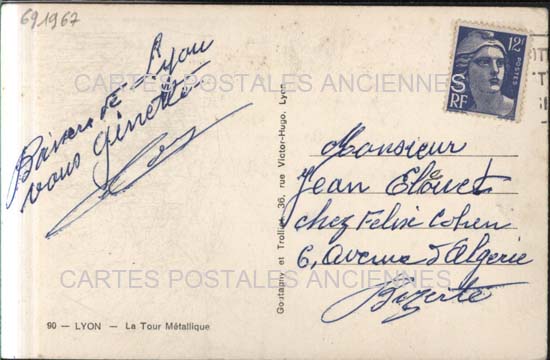 691967
Baisers de Lyon
vous Ginette
12F
POSTES
RF
Monsieur
Jean
chez Felix Cohen
6, avenue d'Algerie
Bizerte
Goutagny et Trollie, 36, rue Victor-Hugo, Lyon
90 — LYON — La Tour Métallique
CARTES POSTALES ANCIENNES
CARTES POSTALES ANCIENNES